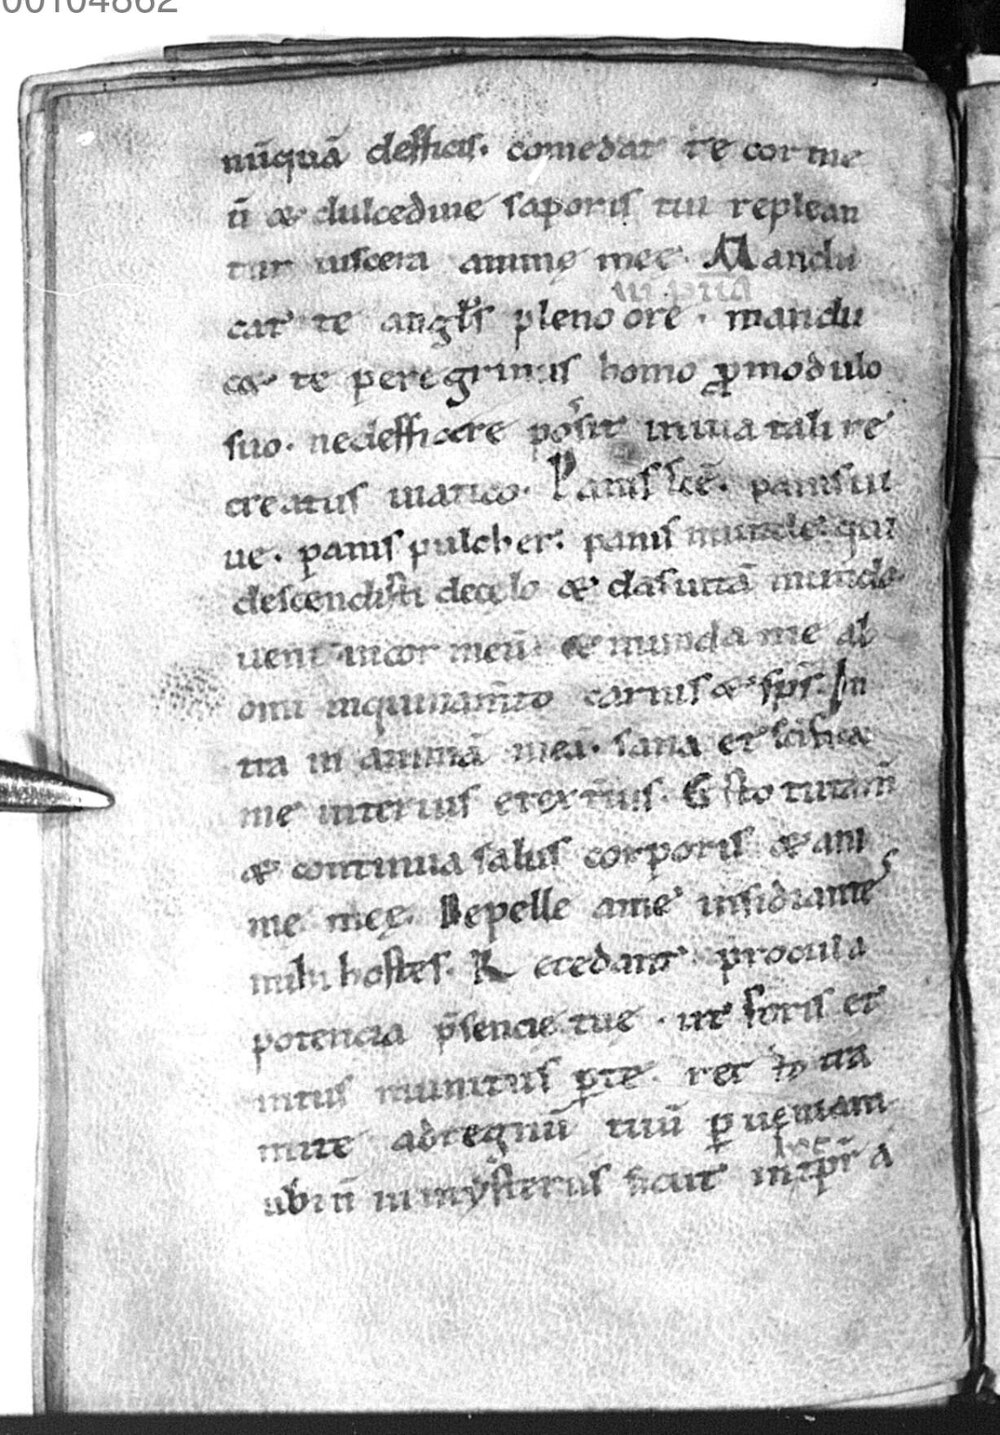 00104862
nūquā defficis. comedat te cor me
ū & dulcedine saporis tui replean
tur uiscera animę meę. Mandu
in pr̄ia
cat te angl̄s pleno ore. mandu
c& te peregrinus homo ꝓ modulo
suo. ne defficere possit in uia tali re
creatus uiatico. Panis sc̄e. panis ui
ue. panis pulcher. panis munde. qui
descendisti de cęlo & das uitā mundo
ueni in cor meū & munda me ab
omi inquinam̄to carnis & sp̄s. In
tra in animā meā. sana et sc̄ifica
me interius et exterīus. Esto tutam̄
& continua salus corporis & ani
me meę. Repelle a me insidiantes
mihi hostes. Recedant procul a
potencia p̄sencie tue. ut foris et
intus munitus ꝑ te. recto tra
mite ad regnū tuū ꝑueniam
ubi n̄ in mysteriis sicut in hoc tp̄r a